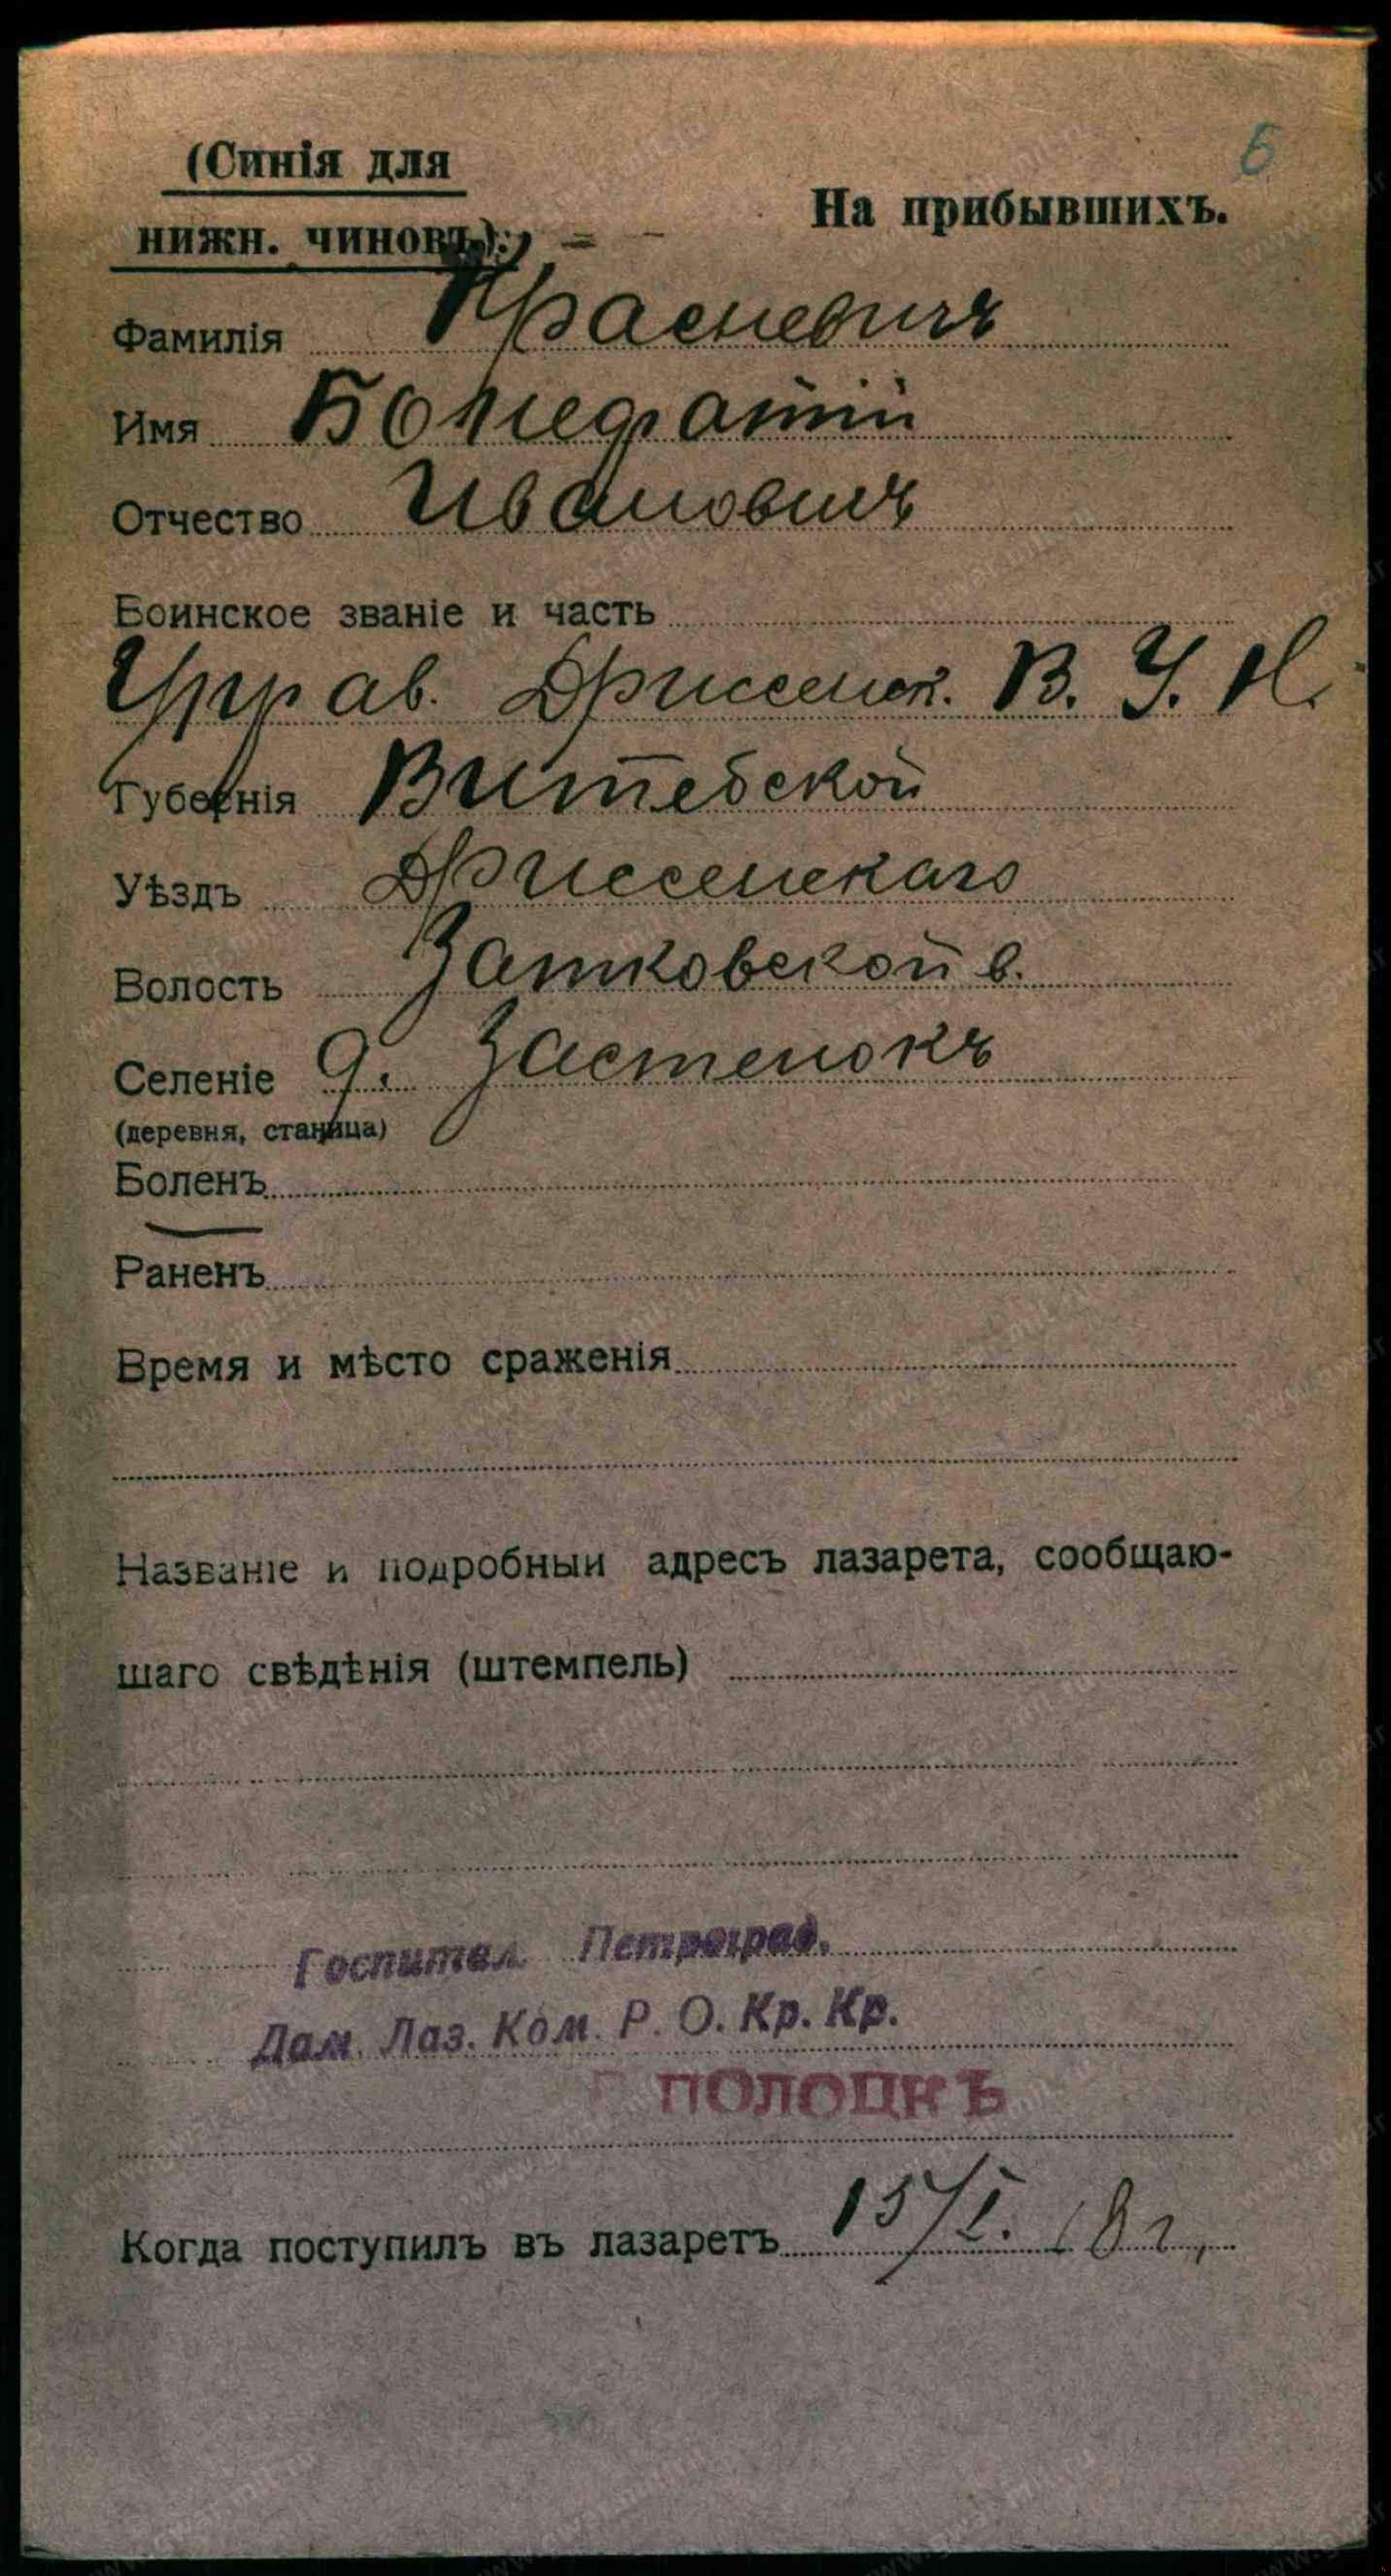 (Синія для
нижн. чиновъ):
На прибывшихъ.
Фамилія Красневичъ
Имя Бонефатій
Отчество Ивановичъ
Воинское званіе и часть
Управ. Дриссенск. В. У. Н.
Губернія Витебской
Уѣздъ Дриссенскаго
Волость Затковской в.
Селеніе д. Застенокъ
(деревня, станица)
Боленъ
Раненъ
Время и мѣсто сраженія
Названіе и подробный адресъ лазарета, сообщаю-
шаго свѣдѣнія (штемпель)
Госпитал. Петроград.
Дам. Лаз. Ком. Р. О. Кр. Кр.
Г ПОЛОЦКЪ
Когда поступилъ въ лазаретъ 15/I. 18 г.